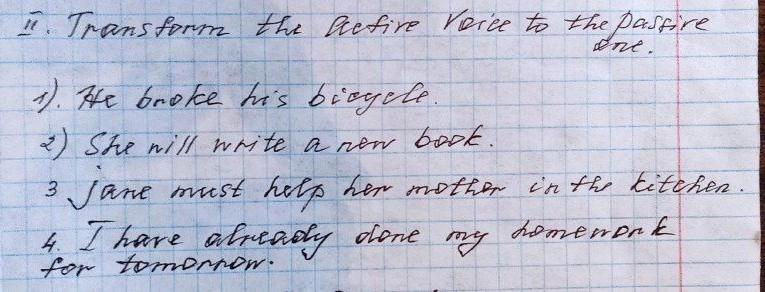 II. Transform the Active Voice to the Passive
one.
1). He broke his bicycle.
2) She will write a new book.
3 Jane must help her mother in the kitchen.
4. I have already done my homework
for tomorrow.